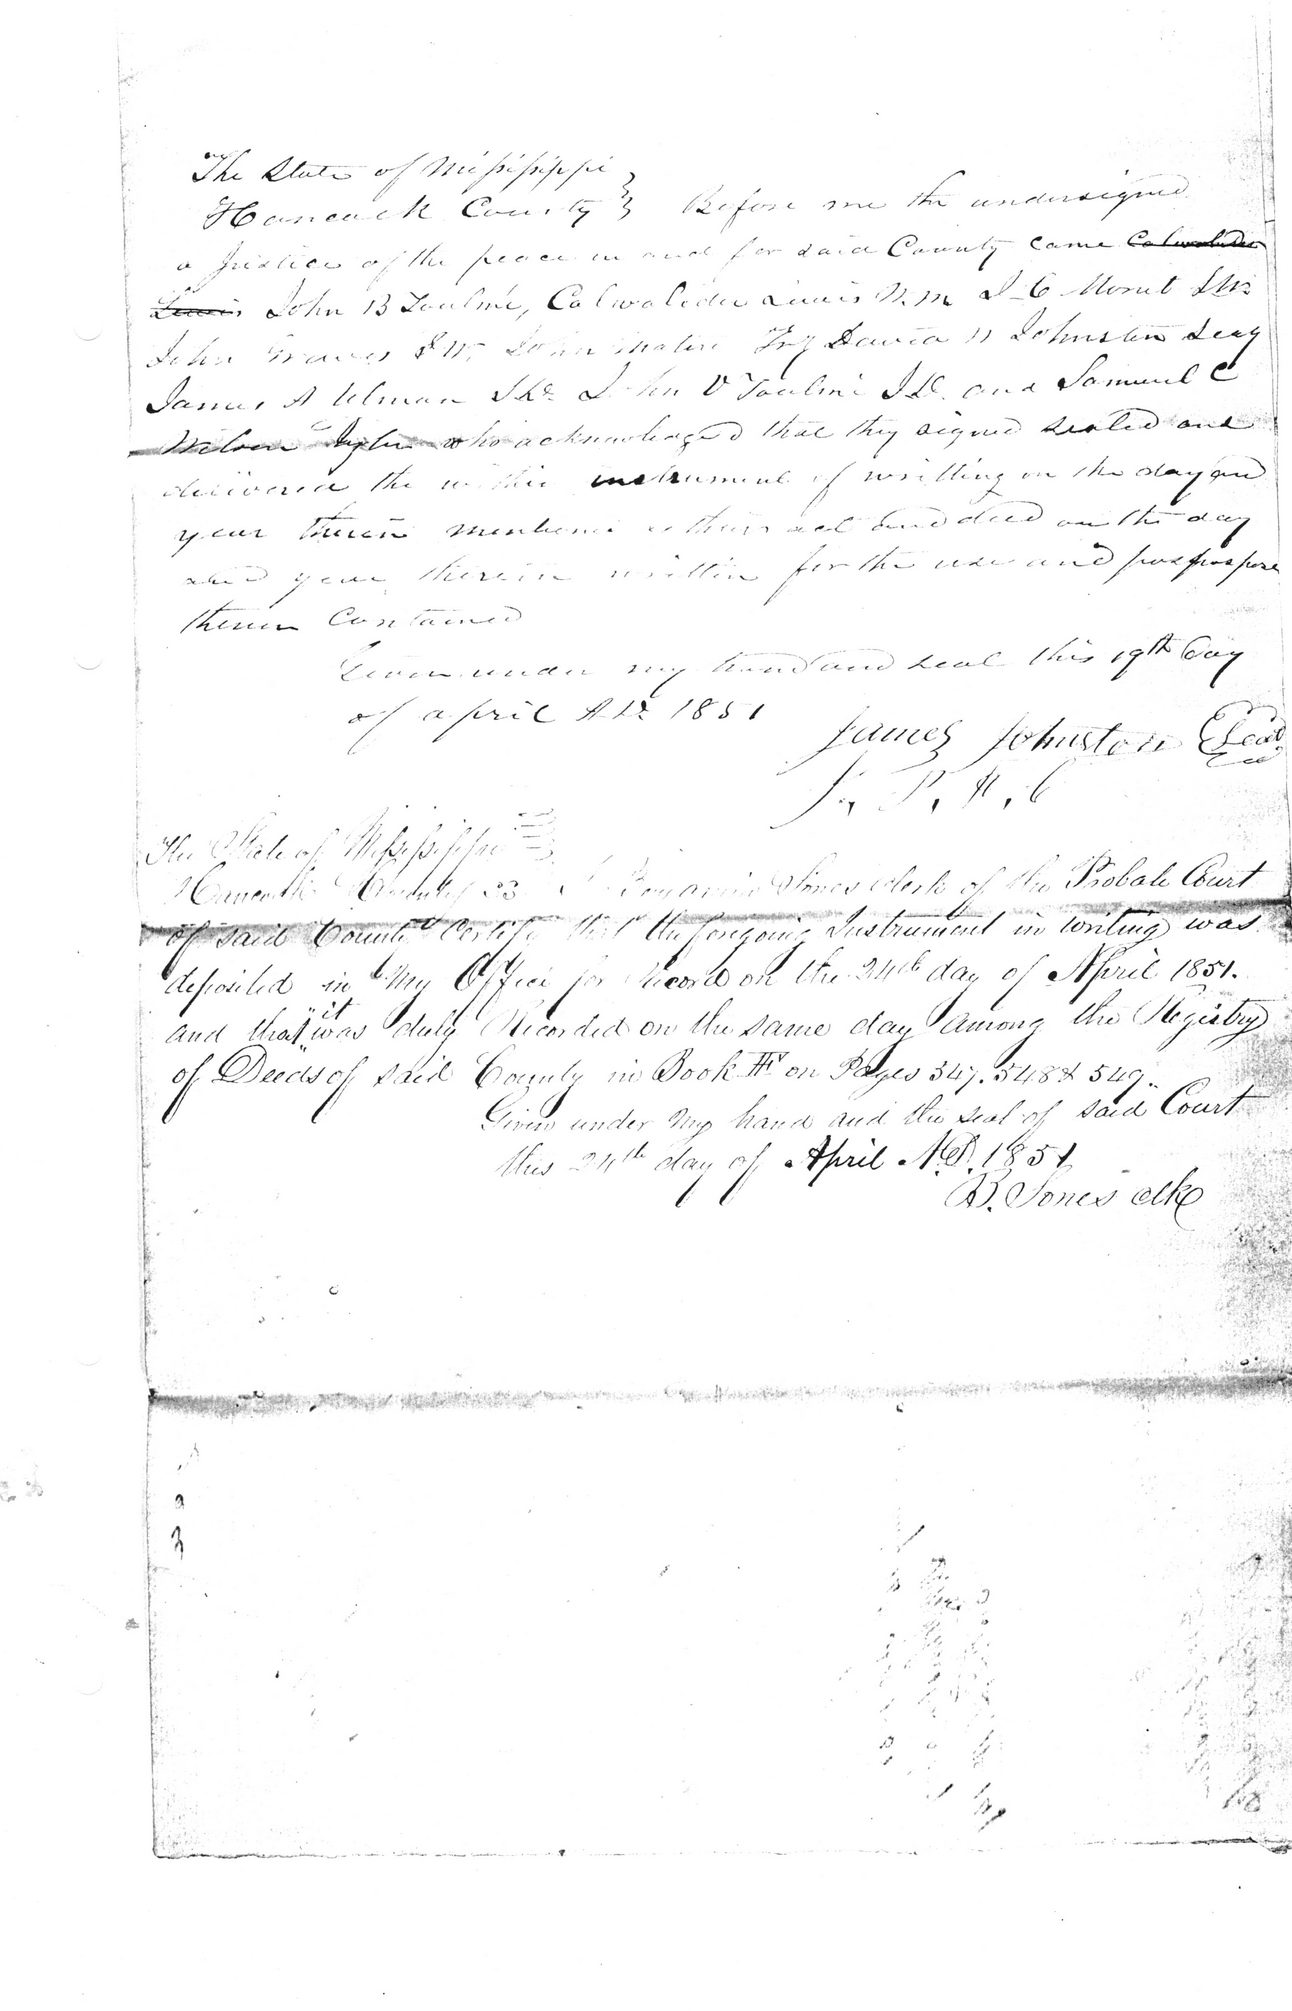 The State of Mississippi
Hancock County Before me the undersigned
a Justice of the peace in and for said County came Calwalider
Lewis John B Toulmé, Calwalider Lewis W.M J C Monet S.W.
John Graves J W. John Tray David N Johnston Secy
James A Ulman S.D. John V Toulmé J.D. and Samuel C
Wilson Tyler who acknowledged that they signed sealed and
delivered the within instrument of writting on the day and
year therein mentione as their act and deed on the day
and year therein written for the use and purpose
therein Contained
Given under my hand and seal this 19th Day
of april A D. 1851
James Johnston Seal
J. P. H. C
The State of Mississippi
Hancock County SS I Benjamin Jones clerk of the Probate Court
of said County Certify that the foregoing Instrument in writing was
deposited in My Office for Record on the 24th day of April 1851.
and that it was duly Recorded on the same day among the Registry
of Deeds of said County in Book on Pages 547. 548 & 549.
Given under my hand and the seal of said Court
this 24th day of April A.D. 1851
B. Jones clk